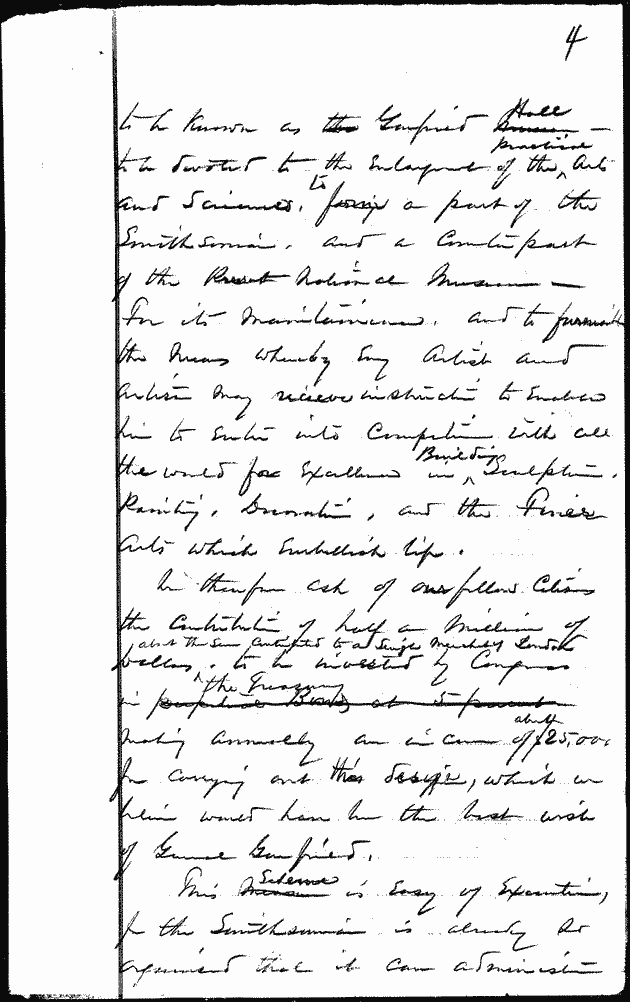 4
to be known as the Garfield Museum Hall —
to be devoted to the Enlargement of the practical Arts
and Sciences. to form a part of the
Smithsonian. and a Counterpart
of the Present National Museum —
For its maintainance. and to furnish
the Means whereby Any Artist and
Artisan May recieve instruction to Enable
him to Enter into Competition with all
the world for Excellence in Building Sculpture.
Painting, Decoration, and the Finer
Arts which Embellish life.
We therefore ask of our fellow Citizens
the Contribution of half a Million of
about the Sum Contributed to a Single
Dollars. to be invested by Congress
the Treasury
in perpetual Bonds at 5 percent
making annually an income of about $25,000
for carrying out this design, which we
believe would have been the best wish
of General Garfield.
This Museum Scheme is Easy of Execution,
for the Smithsonian is already so
organized that it can administer